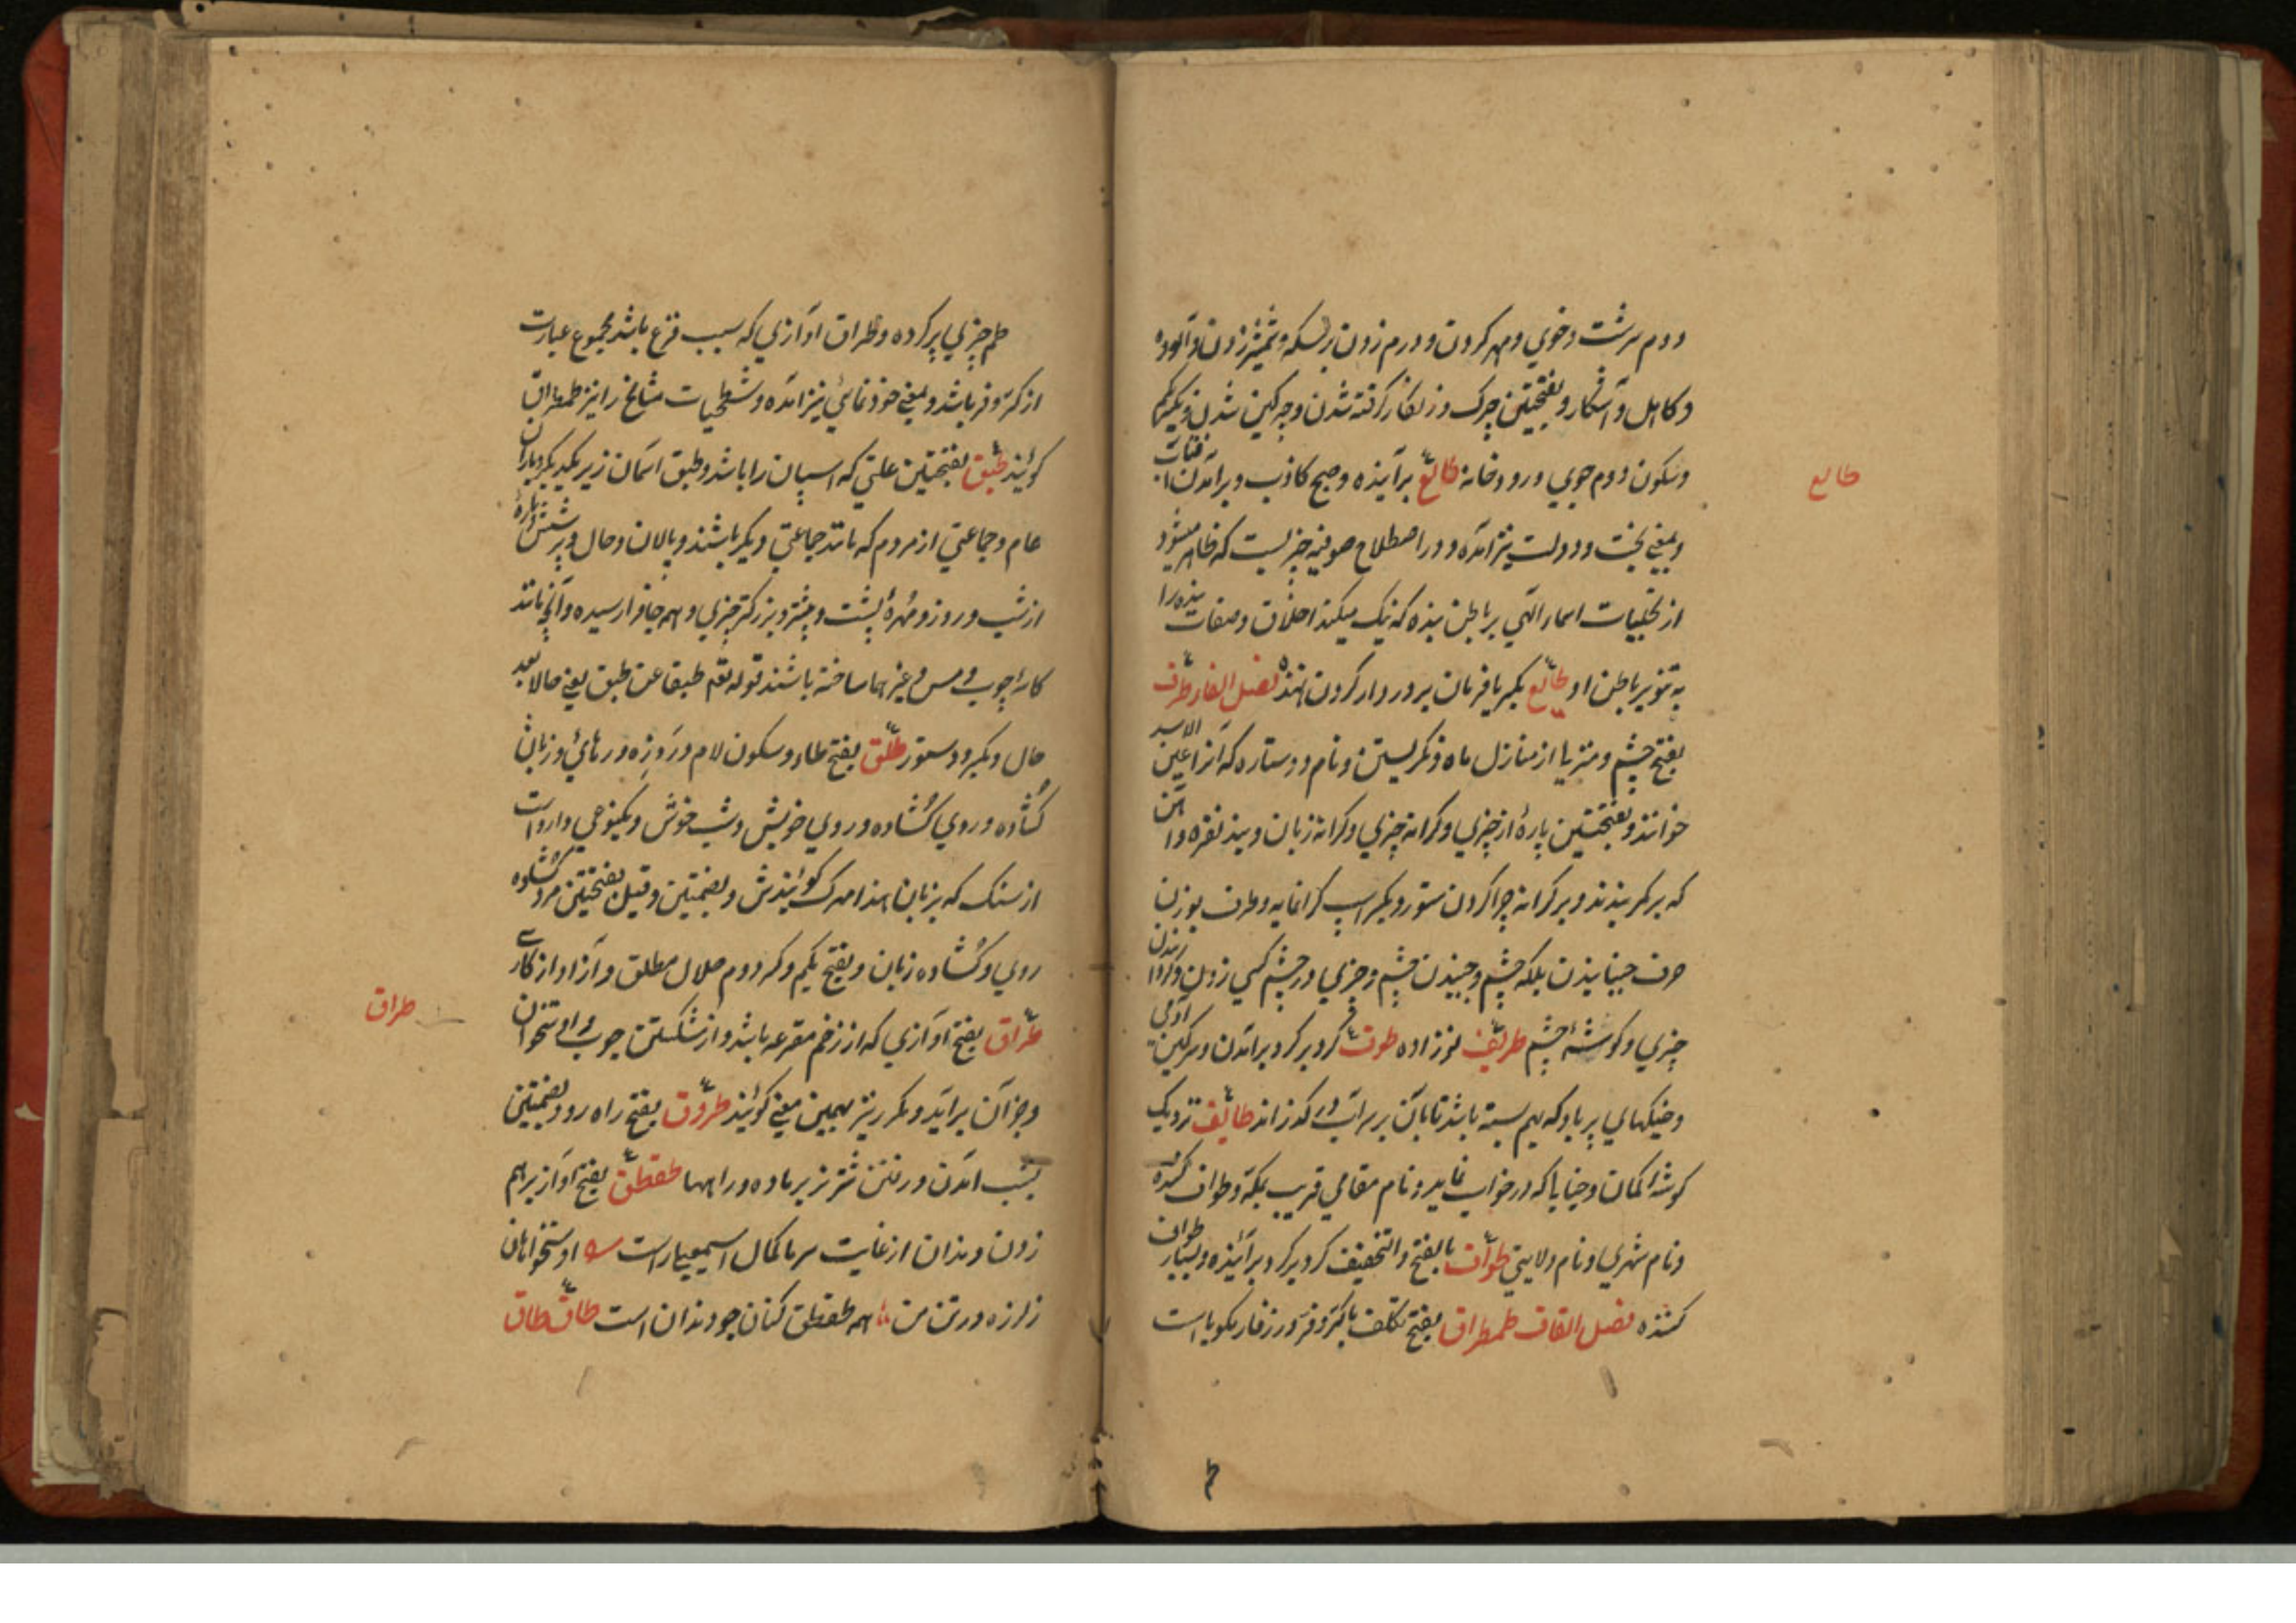 دوم سرشت و خوي و مهر کردن و درم زدن بسکه و شمشیر زدن و آلوده
و کاهل و آشکار و بفتحتین چرک و زنگار گرفته شدن و چرکین شدن و بیکم
و سکون دوم جوي و رودخانه طالع برآینده و صبح کاذب و برآمدن آفتاب
طالع
و بمعني بخت و دولت نیز آمده و در اصطلاح صوفیه چیزیست که ظاهر میشود
از تجلیات اسماء الهي بر باطن بنده که نیک میکند اخلاق و صفات بنده را
به تنویر باطن او طالع بکسر یا فرمان بردار کردن نهنده فصل الفاء طرف
بفتح چشم و منزلیا از منازل ماه و نگریستن و نام دو ستاره که آنرا عین الاسد
خوانند و بفتحتین پارهٔ از چیزي و کرانه چیزي و کرانه زبان و بند نقره و آهن
که بر کمر بندند و بر کرانه چرا کردن ستور و بکسر اسپ گرانمایه و طرف بوزن
حرف جنبانیدن پلکه چشم و جنبیدن چشم و چیزي در چشم کسي زدن و گردانیدن
چیزي و گوشهٔ چشم طریف نوزاده طوف گرد برگرد برآمدن و سرگین آدمي
و خیکهاي پر باد که بهم بسته باشد تا بآن بر سر آب در گذراند طائف نزدیک
گوشهٔ کمان و خیالي که در خواب نماید و نام مقامي قریب بمکه و طواف کننده
و نام شهري و نام ولایتي طواف بالفتح و التخفیف گرد برگرد برآینده و بسیار طواف
کننده فصل القاف طمطراق بفتح تکلف با کر و فر و رزفار گویا است
طم چیزي پر کرده و طراق آوازي که سبب قرع باشد مجموع عبارت
از کر و فر باشد و بمعني خودنمائي نیز آمده و شطحیات مشایخ را نیز طمطراق
گویند طبق بفتحتین علتي که اسپان را باشد و طبق آسمان زیر یکدیگر و باران
عام و جماعتي از مردم که مانند جماعتي دیگر باشند و پالان و حال و پرشش پارهٔ
از شب و روز و مهرهٔ پشت و بیشتر و بزرگتر چیزي و بهم جافرا رسیده و آنچه مانند
کاسه از چوب و مس و غیر آنها ساخته باشند قوله تعم طبقا عن طبق یعني حالا بعد
حال و بکسر دستور طلق بفتح طاء و سکون لام درد زه و رهائي و زبان
گشاده و روي گشاده و روي خویش و شب خوش و یکنوعي داروست
از سنگ که بزبان هند ابهرک گویندش و بضمتین و قیل بفتحتین مرد گشاده
روي و گشاده زبان و بفتح یکم و کسر دوم حلال مطلق و آزاد از کاري
طراق بفتح آوازي که از زخم مقرعه باشد و از شکستن چوب و استخوان
طراق
و جز آن برآید و مکرر نیز بهمین معني گویند طروق بفتح راه رو و بضمتین
بشب آمدن و رفتن شتر نر بر ماده و راهها طقطق بفتح آواز برهم
زدن دندان از غایت سرما کمال اسمعیل راست استخوانهان
ز لرزه در تن من همه طقطق کنان چو دندان است طاق طاق